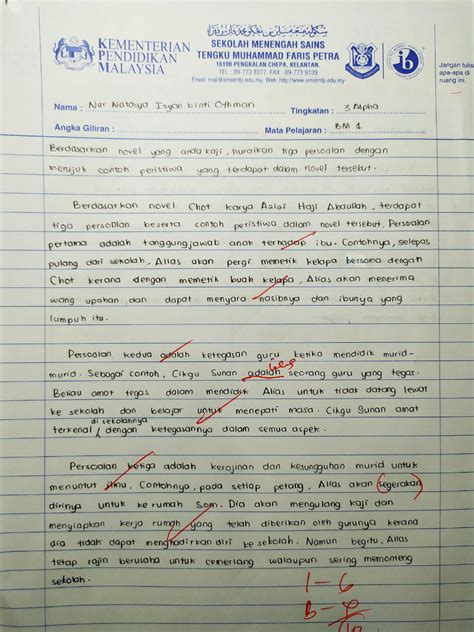 KEMENTERIAN
PENDIDIKAN
MALAYSIA
SEKOLAH MENENGAH SAINS
TENGKU MUHAMMAD FARIS PETRA
16100 PENGKALAN CHEPA, KELANTAN.
TEL : 09-773 8277, FAX : 09-773 9139
ib
Jangan tulis
apa-apa di
ruang ini.
Nama : Nur Natasya Isyan binti Othman
Tingkatan : 3 Alpha
Angka Giliran :
Mata Pelajaran : BM 1
Berdasarkan novel yang anda kaji, huraikan tiga persoalan dengan
merujuk contoh peristiwa yang terdapat dalam novel tersebut.
Berdasarkan novel Chot karya Azizi Haji Abdullah, terdapat
tiga persoalan beserta contoh peristiwa dalam novel tersebut. Persoalan
pertama adalah tanggungjawab anak terhadap ibu. Contohnya, selepas
pulang dari sekolah, Alias akan pergi memetik kelapa bersama dengan
Chot kerana dengan memetik buah kelapa, Alias akan menerima
wang upahan dan dapat menyara nasibnya dan ibunya yang
lumpuh itu.
Persoalan kedua adalah ketegasan guru ketika mendidik murid-
murid. Sebagai contoh, Cikgu Sunan adalah seorang guru yang tegas.
Beliau amat tegas dalam mendidik Alias untuk tidak datang lewat
ke sekolah dan belajar untuk menepati masa. Cikgu Sunan amat
di sekolahnya
terkenal dengan ketegasannya dalam semua aspek.
Persoalan ketiga adalah kerajinan dan kesungguhan murid untuk
menuntut ilmu. Contohnya, pada setiap petang, Alias akan segerakan
dirinya untuk ke rumah Som. Dia akan mengulang kaji dan
menyiapkan kerja rumah yang telah diberikan oleh gurunya kerana
dia tidak dapat menghadirkan diri ke sekolah. Namun begitu, Alias
tetap rajin berusaha untuk cemerlang walaupun sering memonteng
sekolah.
1 - 6